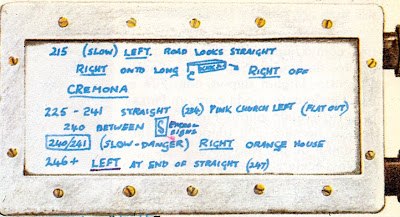 215 (SLOW) LEFT. ROAD LOOKS STRAIGHT
RIGHT ONTO LONG RIGHT OFF
CREMONA
225 - 241 STRAIGHT (234) PINK CHURCH LEFT (FLAT OUT)
240 BETWEEN SIGNS
240/241 (SLOW-DANGER) RIGHT ORANGE HOUSE
246+ LEFT AT END OF STRAIGHT (247)